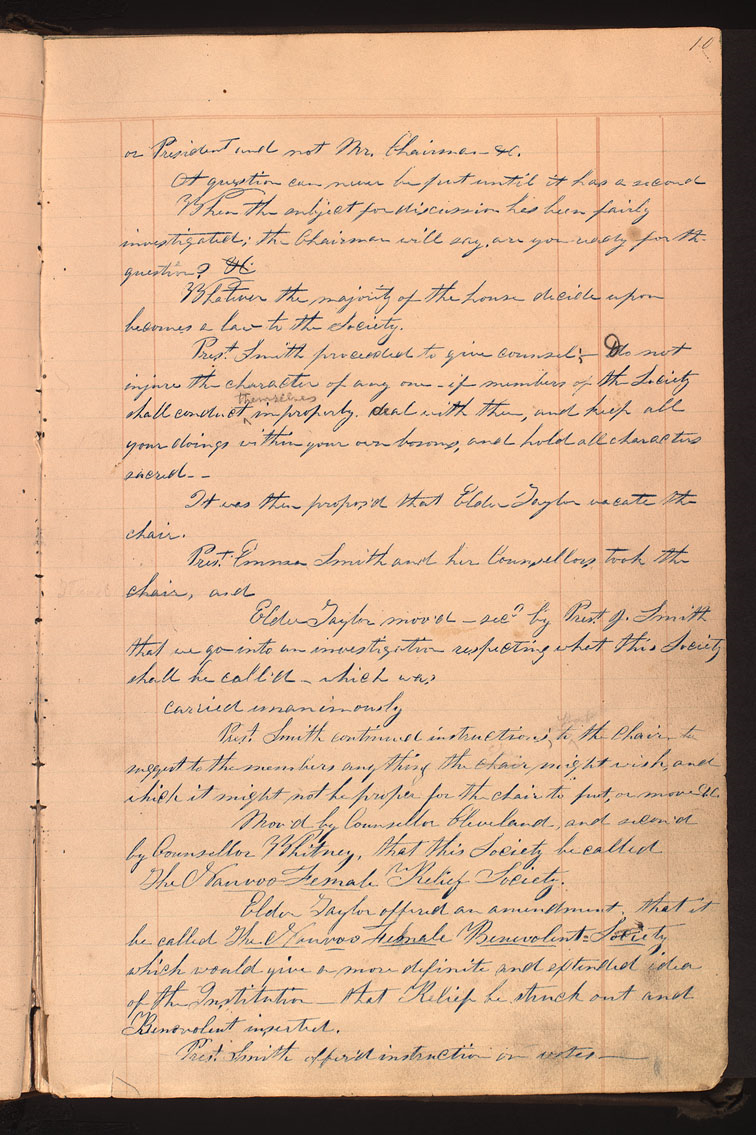 10
or President and not Mr. Chairman &c.
A question can never be put until it has a second
When the subject for discussion has been fairly
investigated; the Chairman will say, are you ready for the
question? &c
Whatever the majority of the house decide upon
becomes a law to the Society.
Prest. Smith proceeded to give counsel;— Do not
injure the character of any one — if members of the Society
themselves
shall conduct improperly. deal with them, and keep all
your doings within your own bosoms, and hold all characters
sacred--
It was then propos'd that Elder Taylor vacate the
chair.
Prest. Emma Smith and her Counsellors took the
chair, and
Elder Taylor mov'd — secd. by Prest. J. Smith
that we go into an investigation respecting what this Society
shall be call'd — which was
carried unanimously
Prest. Smith continued instructions to the Chair to
suggest to the members anything the chair might wish, and
which it might not be proper for the chair to put, or move &c.
Mov'd by Counsellor Cleveland, and secon'd
by Counsellor Whitney, that this Society be called
The Nauvoo Female Relief Society.
Elder Taylor offered an amendment, that it
be called The Nauvoo Female Benevolent Society
which would give a more definite and extended idea
of the Institution — that Relief be struck out and
Benevolent inserted.
Prest. Smith offer'd instruction on votes —